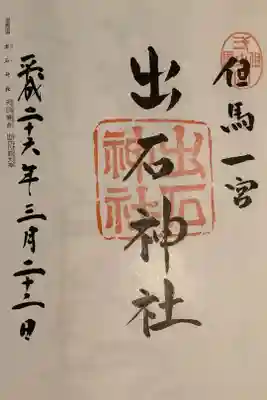 但馬一宮
出石神社
出石
神社
平成二十六年三月二十二日